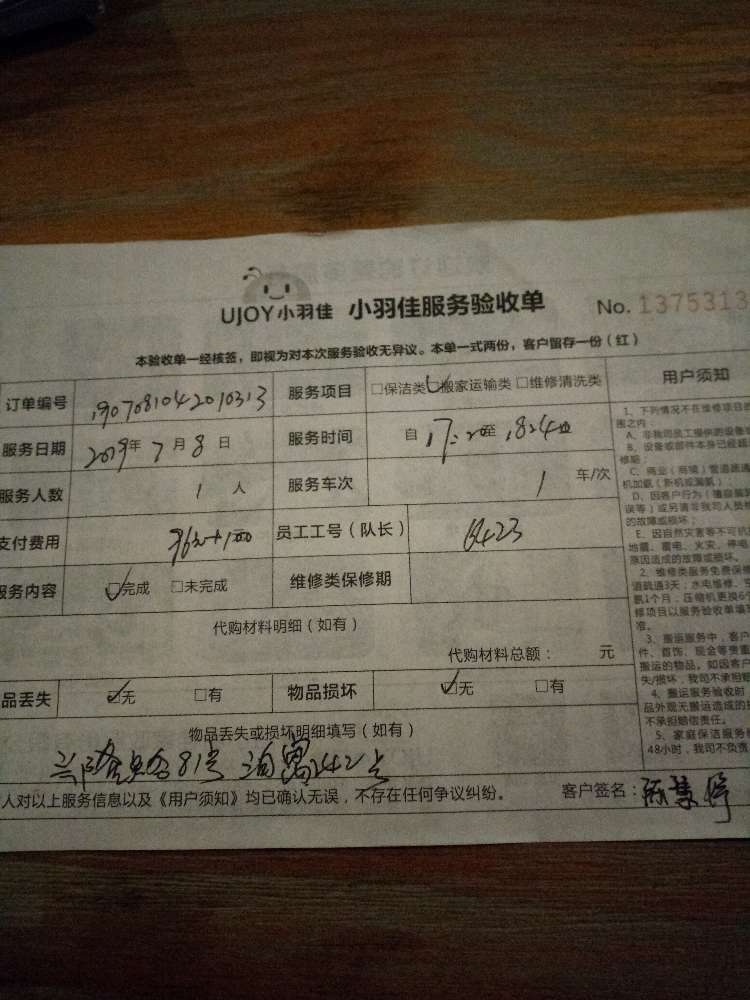 UJOY小羽佳 小羽佳服务验收单 No. 1375313
本验收单一经核签，即视为对本次服务验收无异议。本单一式两份，客户留存一份（红）
订单编号 1907081042010313 服务项目 □保洁类 ☑搬家运输类 □维修清洗类 用户须知
服务日期 2019年7月8日 服务时间 自17:20至1824
服务人数 1人 服务车次 1 车/次
支付费用 员工工号（队长） 6423
服务内容 ☑完成 □未完成 维修类保修期
代购材料明细（如有）
代购材料总额： 元
品丢失 ☑无 □有 物品损坏 ☑无 □有
物品丢失或损坏明细填写（如有）
81号 泊寓242
人对以上服务信息以及《用户须知》均已确认无误，不存在任何争议纠纷。 客户签名：
1、下列情况不在维修项目
围之内：
A、非我司员工提供的设备
B、设备或部件本身已经超
修期；
C、商业（商铺）管道疏通
机加氨（新机或漏氨）；
D、因客户行为
误等）或另请非我司人员
的故障或损坏；
E、因自然灾害等不可抗
地震、雷电、火灾、停电
原因造成的故障或损坏。
2、维修类服务免费保修
道疏通3天；水电维修、
氨1个月，压缩机更换6个
修项目以服务验收单填写
准。
3、搬运服务中，客户
件、首饰、现金等贵重
搬运的物品。如因客户
失/损坏，我司不承担赔
4、搬运服务验收时
品外观无搬运造成的
不承担赔偿责任。
5、家庭保洁服务
48小时，我司不负责